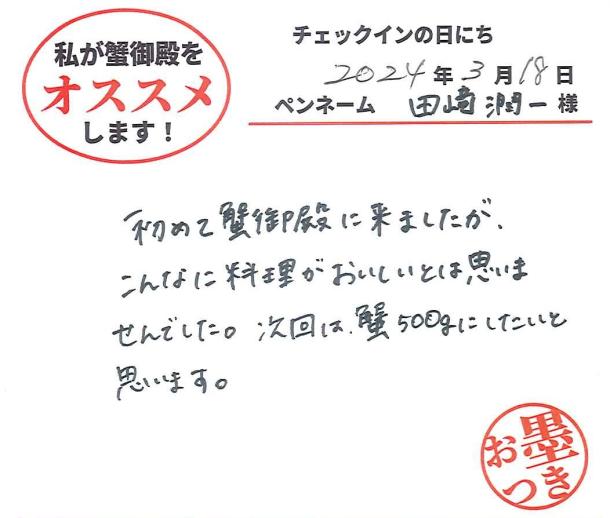 私が蟹御殿を
オススメ
します！
チェックインの日にち
2024年3月18日
ペンネーム 田﨑潤一様
初めて蟹御殿に来ましたが、
こんなに料理がおいしいとは思いま
せんでした。次回は、蟹500gにしたいと
思います。
お墨
つき